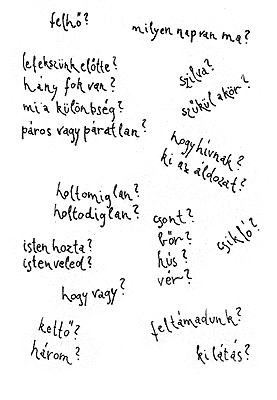 felhő?
milyen nap van ma?
lefekszünk előtte?
hány fok van?
mi a különbség?
páros vagy páratlan?
szilva?
szűkül a kör?
hogy hívnak?
ki az áldozat?
holtomiglan?
holtodiglan?
isten hozta?
isten veled?
hogy vagy?
csont?
bőr?
hús?
vér?
csikló?
kettő?
három?
feltámadunk?
kilátás?